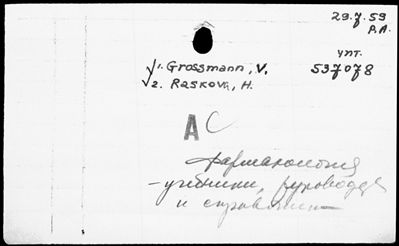 29.7.59
P.A.
упт.
√1. Grossmann, V. 537078
√2. Raskova, H.
AC
фармакология
- учебники, руководства
и справочники